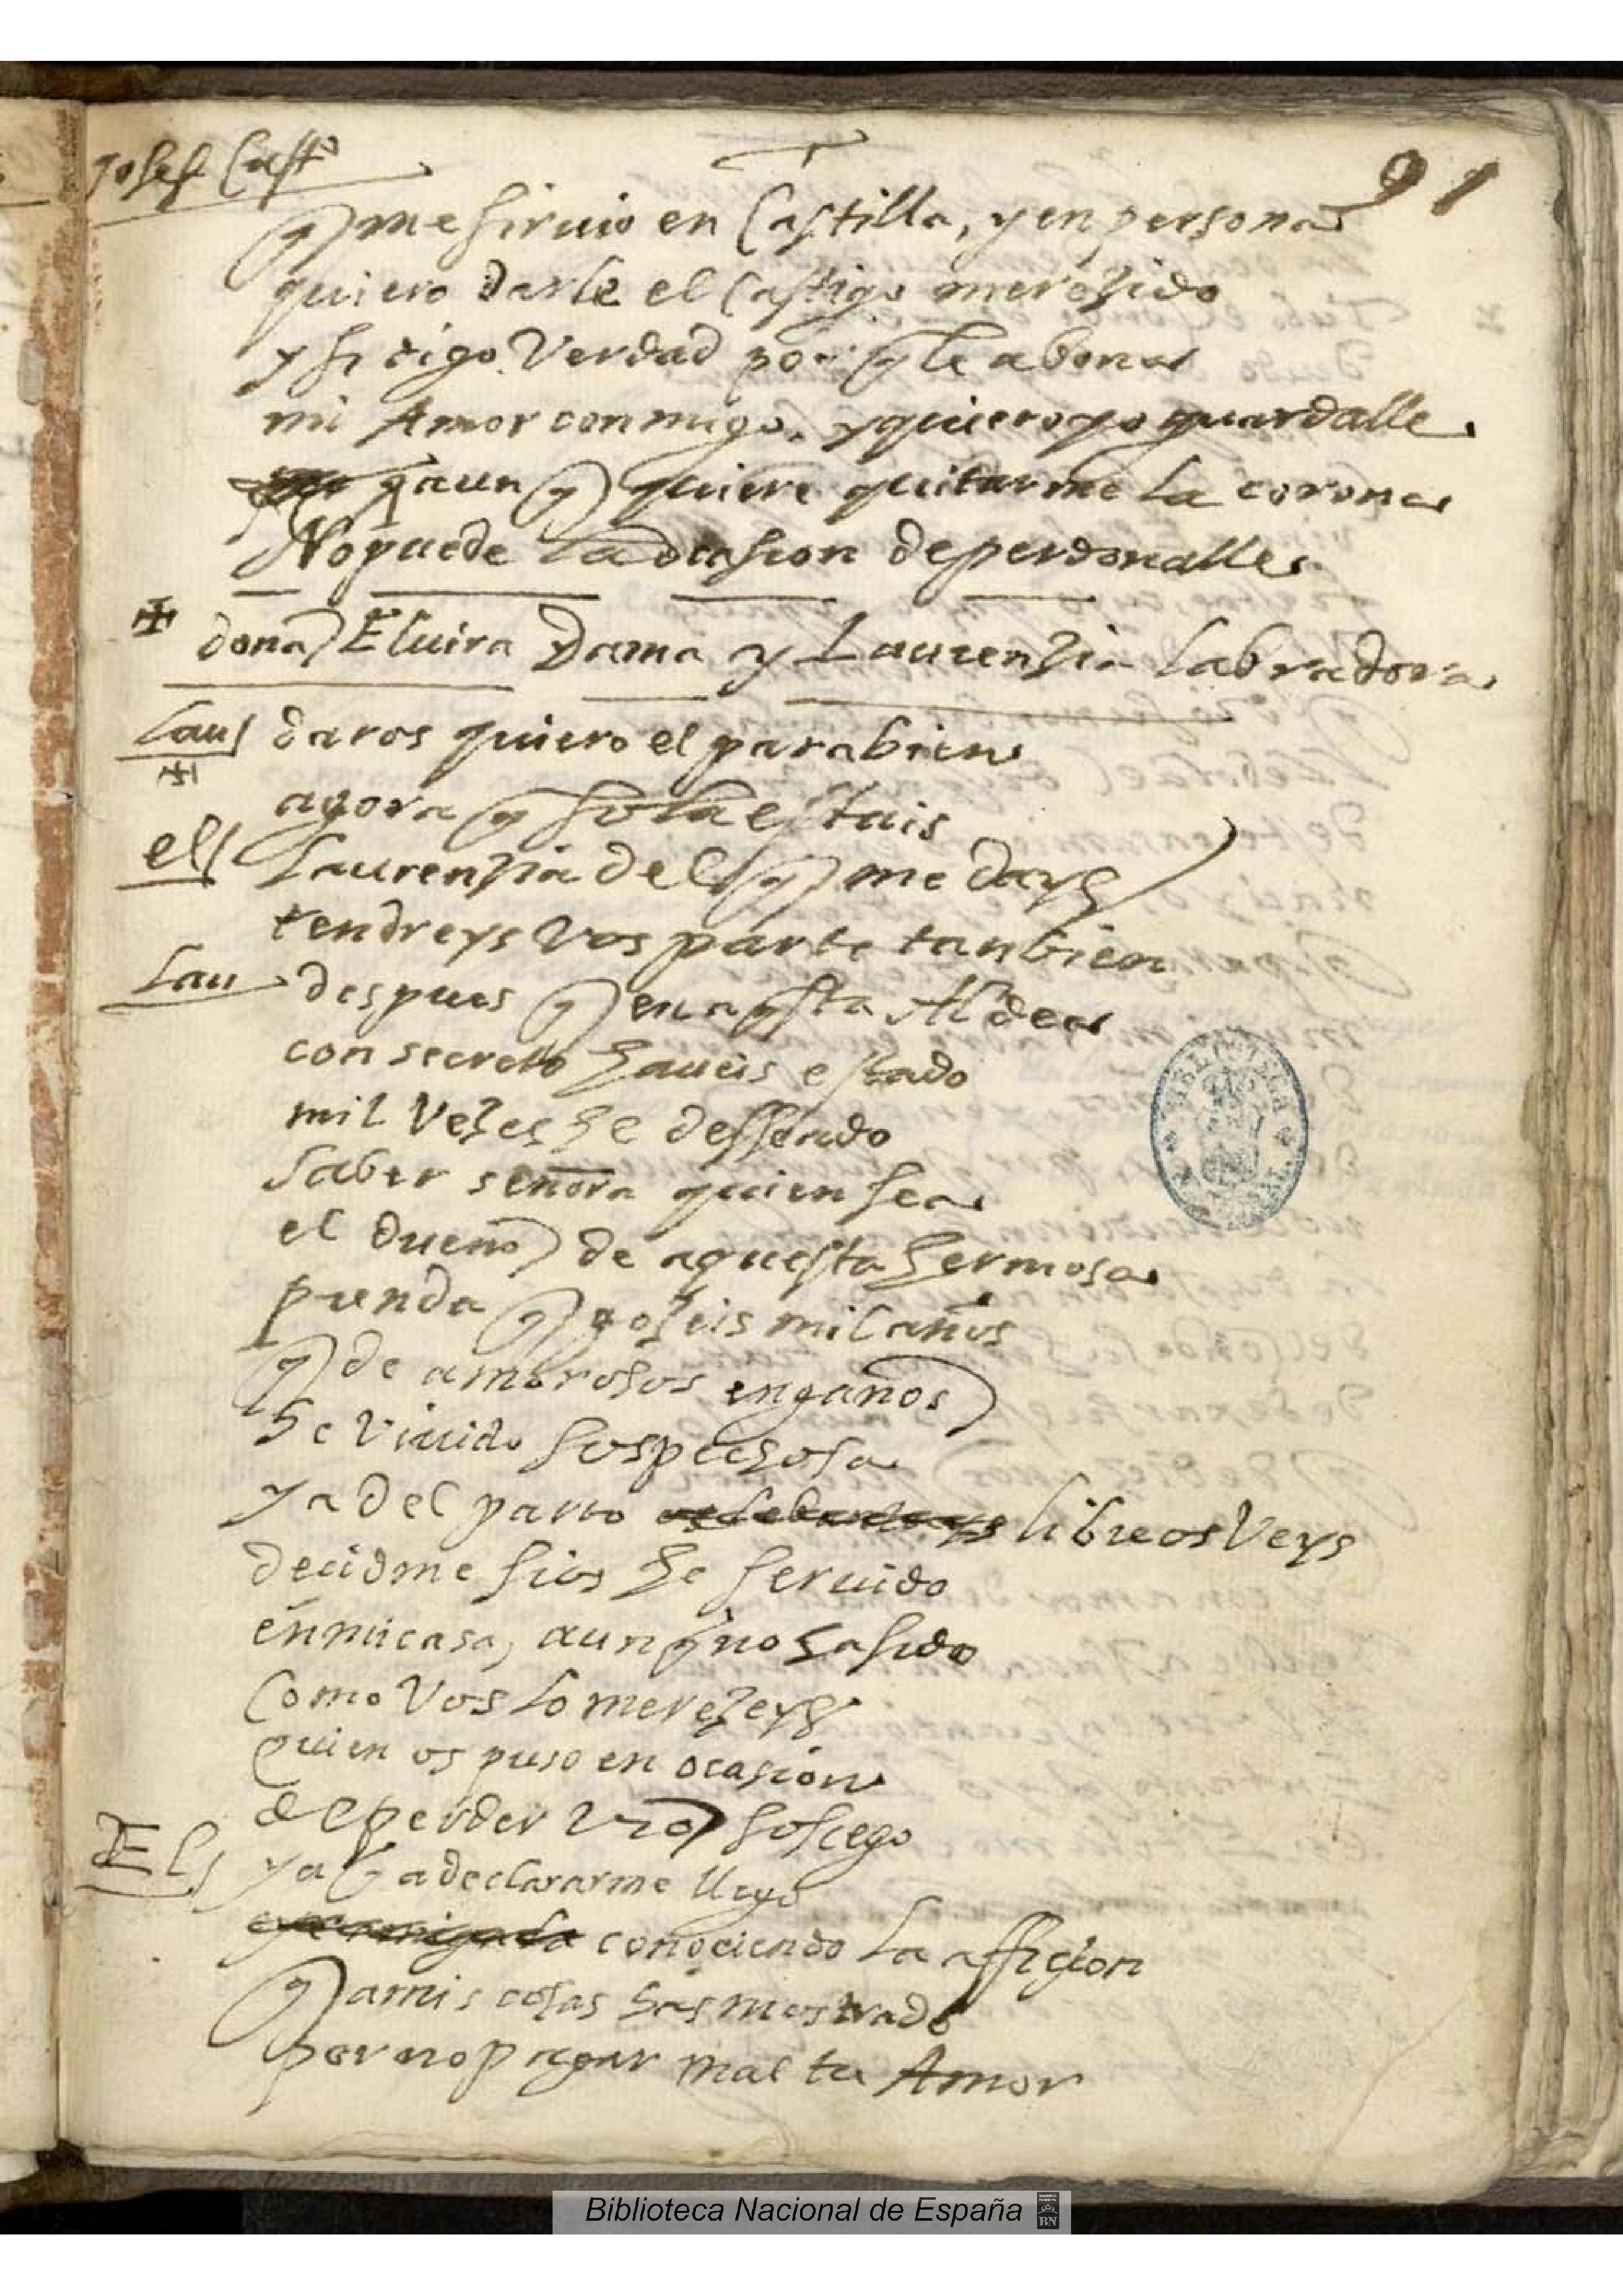 Josef Cast
91
q me siruio en Castilla, y en persona
quiero darle el Castigo merezido
y si digo Verdad por q le abona
mi Amor conmigo. y quiero yo guardalle
q aun q quiere quitarme la corona
No puede la ocasion de perdonalle
dona Eluira Dama y Laurenzia labradora
Lau daros quiero el parabien
agora q sola estais
el Laurenzia del q me days
tendreys vos parte tanbien
Lau despues q en aqsta Aldea
con secreto haueis estado
mil vezes he desseado
saber señora quien sea
el dueño de aquesta hermosa
prenda q gozeis mil años
q de amorosos engaños
he viuido sospechosa
ya del parto libre os Veys
decidme si os he seruido
en mi casa, aunq no ha sido
Como Vos lo merezeys
quien os puso en ocasion
de perder vro sosiego
El ya q a declararme llego
conociendo la afficion
q a mis cosas has mostrado
por no pagar mal tu Amor
Biblioteca Nacional de España
BN